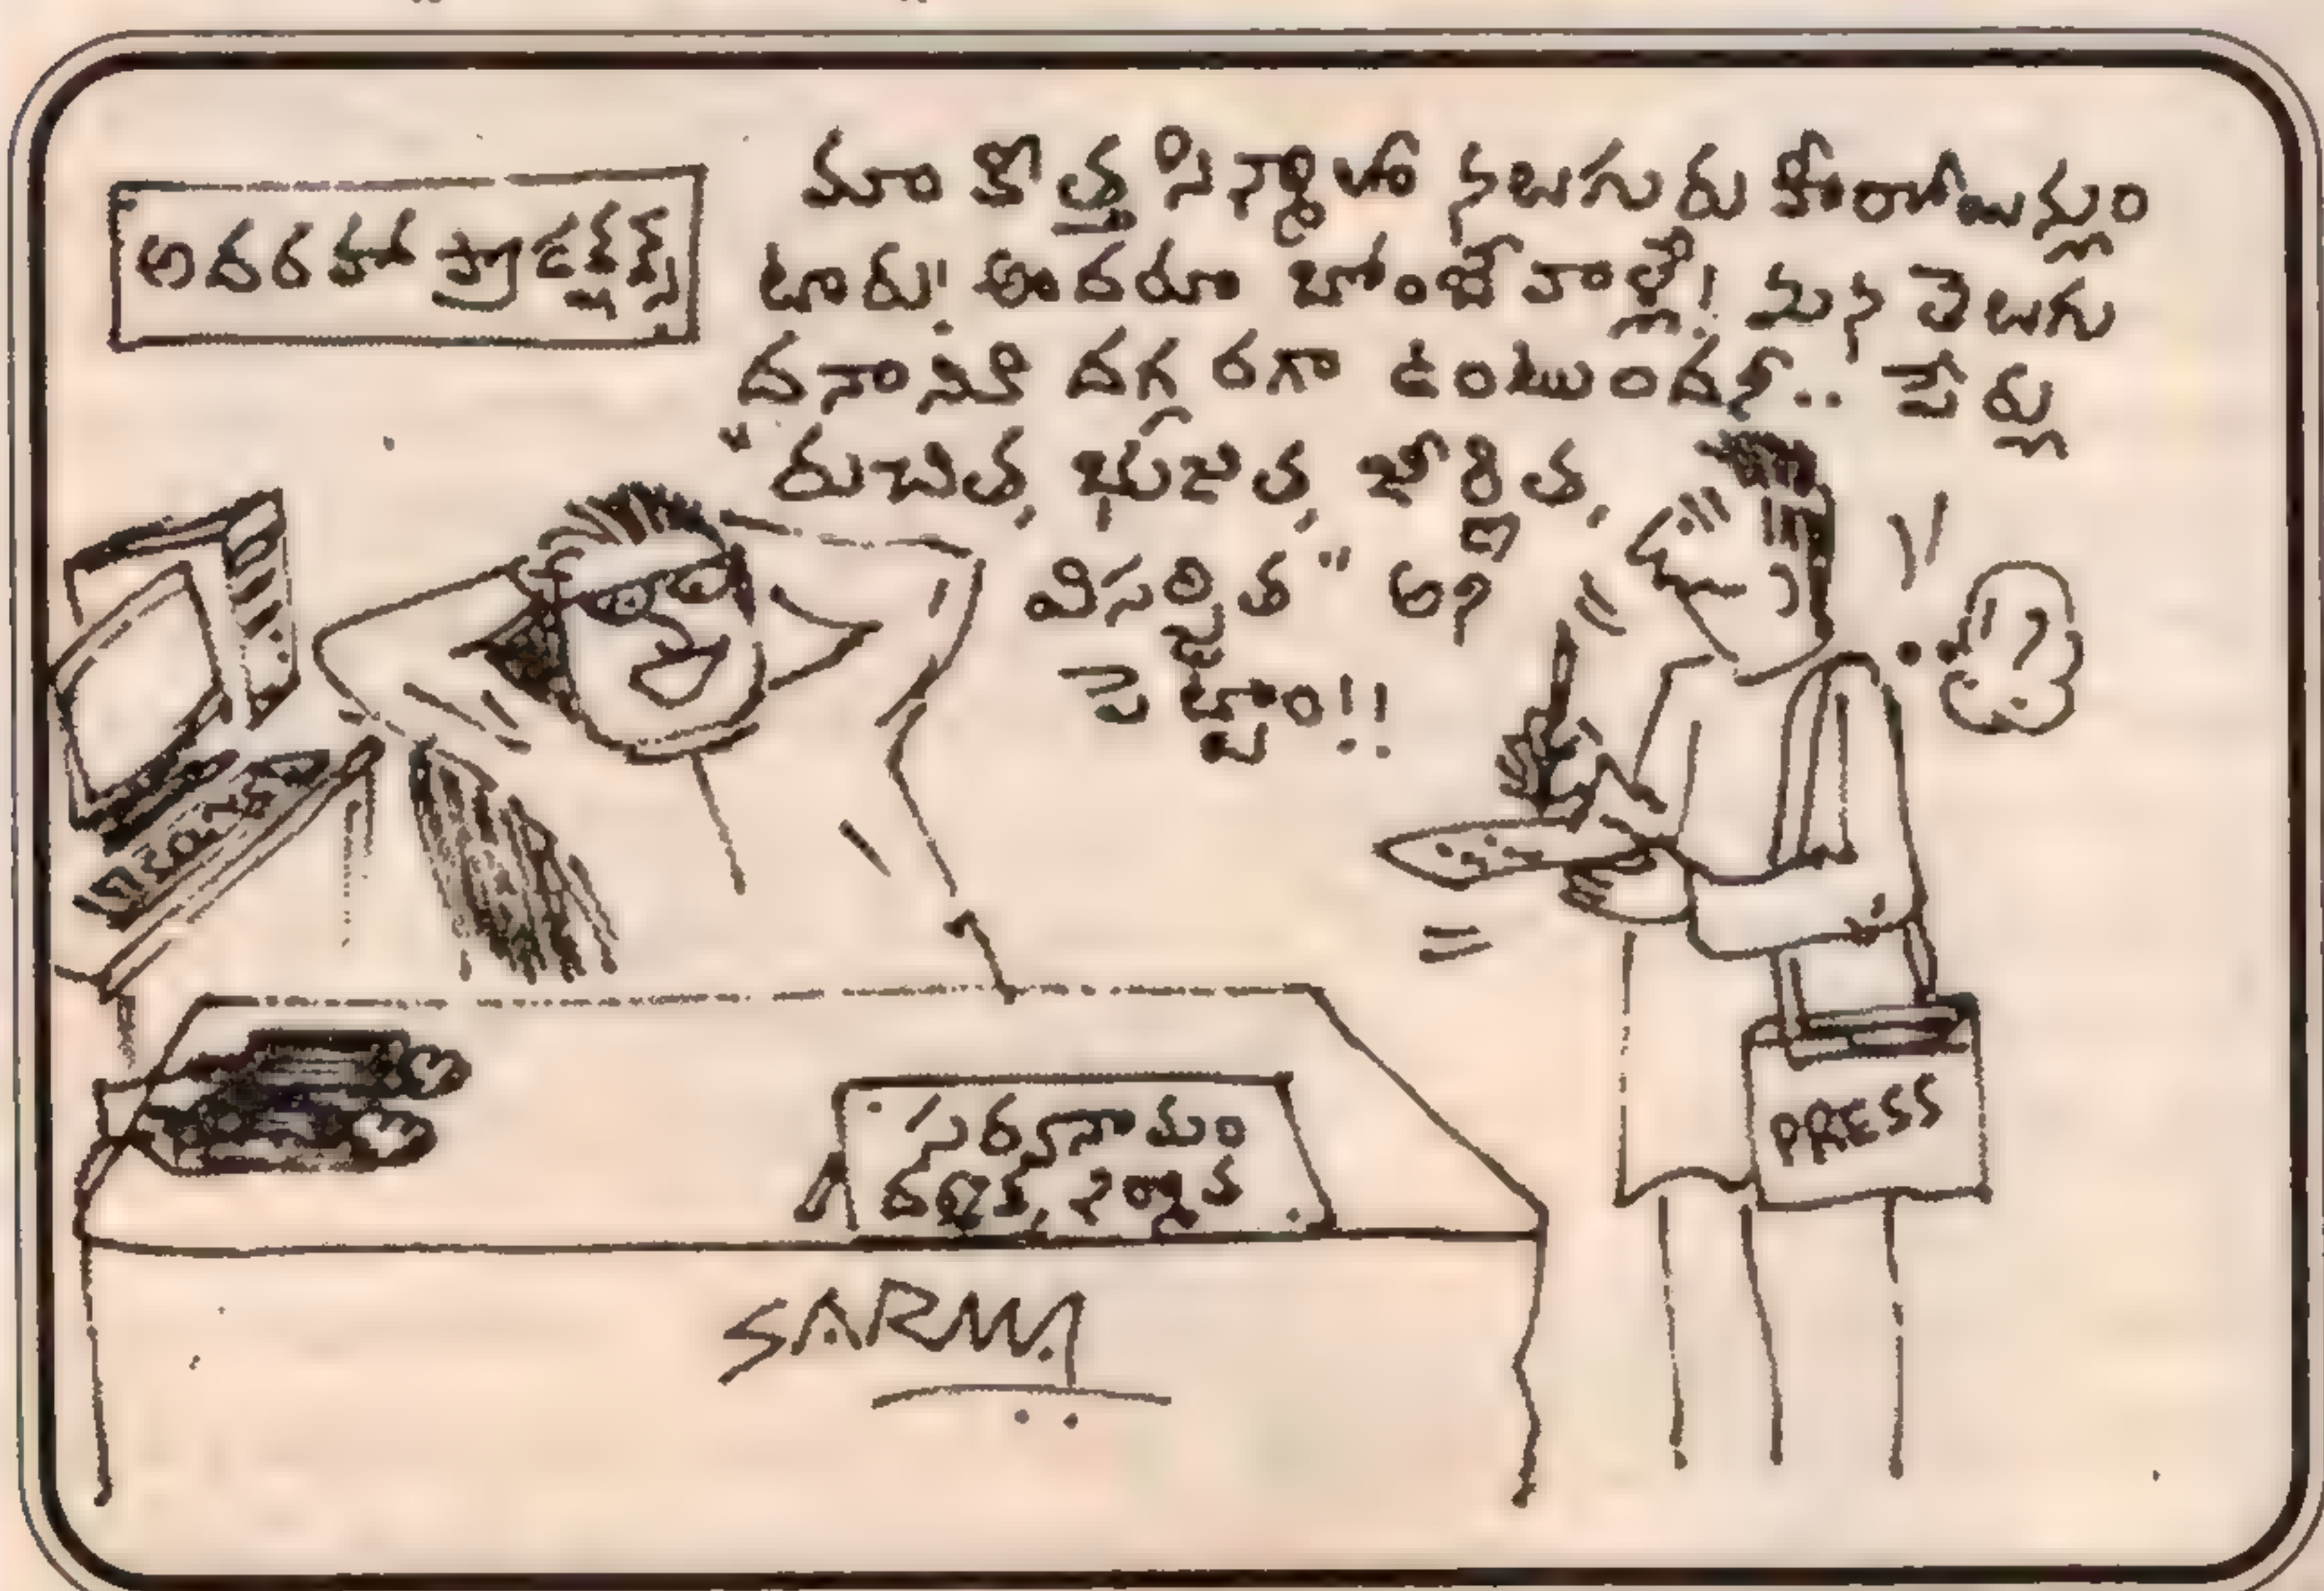 అదరహో ప్రొడక్షన్స్
మా కొత్త సిన్మాలో నలుగురు హీరోయిన్లుం
టారు! అందరూ బాంబేవాళ్లే! మన తెలుగు
దనానికి దగ్గరగా ఉంటుందని.. పేర్లు
"రుచిత, భుజిత, జీర్ణిత,
విసర్జిత" అని
పెట్టాం!!
PRESS
సర్వనామం
దర్శక, నిర్మాత
SARMA